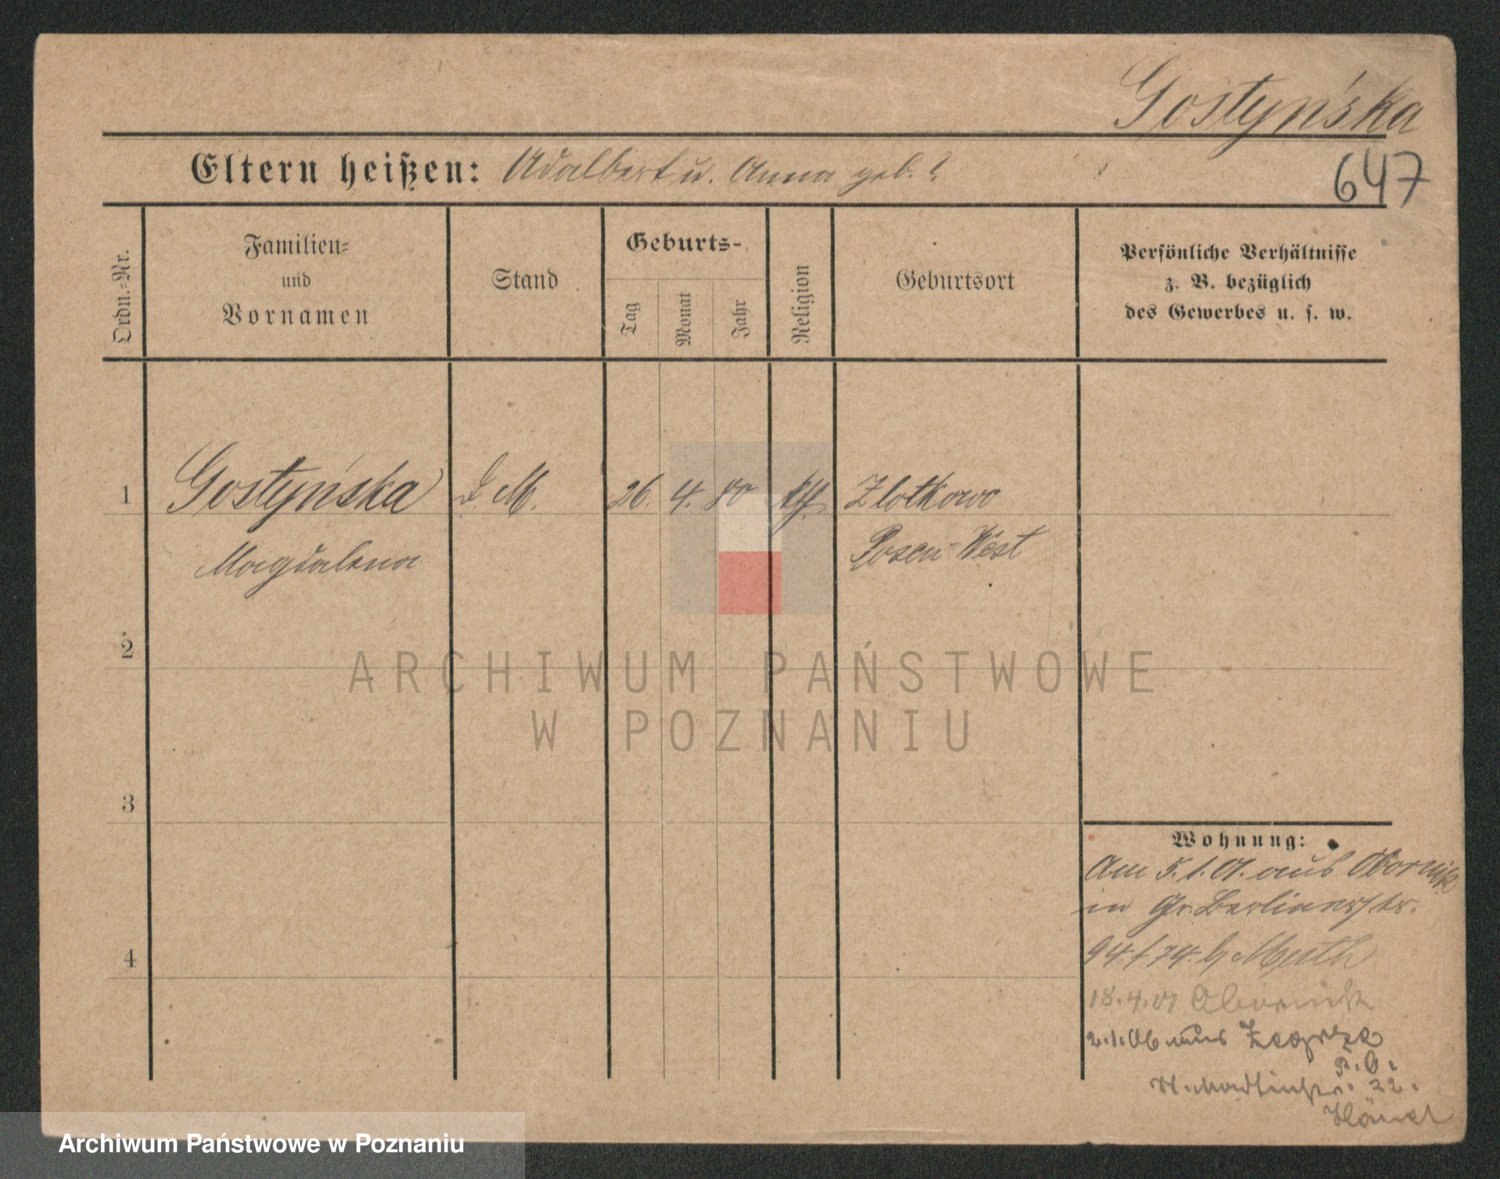 Gostyńska
Eltern heißen: Adalbert u. Anna geb. ?
647
Ordn.-Nr.
Familien-
und
Vornamen
Stand
Geburts-
Tag
Monat
Jahr
Religion
Geburtsort
Persönliche Verhältnisse
z. B. bezüglich
des Gewerbes u. s. w.
1
Gostyńska
D. M.
26. 4. 80
kth.
Zlotkowo
Magdalena
Posen-West
2
ARCHIWUM PAŃSTWOWE
W POZNANIU
3
Wohnung:
Am 5.1.01. aus Obornik
in Gr. Berlinerstr.
94/74. b/ Muth
4
18.4.01 Obornik
2.1.06 aus
P. O.
22.
Archiwum Państwowe w Poznaniu